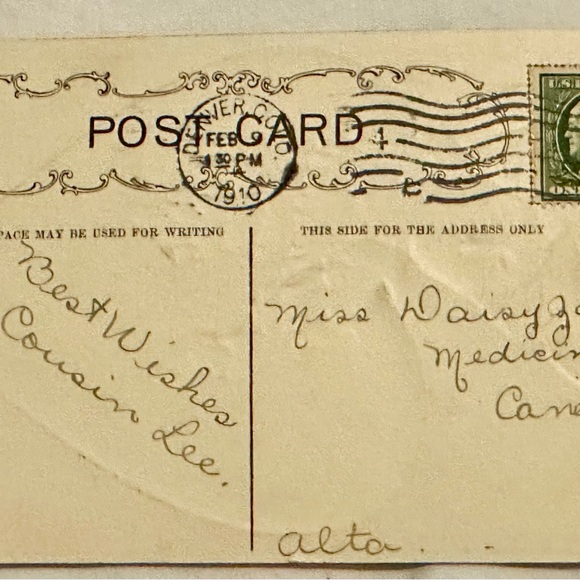 POST CARD
DENVER, COLO
FEB 9
30 P M
A
1910
1
C
U.S.
PACE MAY BE USED FOR WRITING
THIS SIDE FOR THE ADDRESS ONLY
Best Wishes
Cousin Lee.
Miss Daisy
Medicin
Can
Alta.